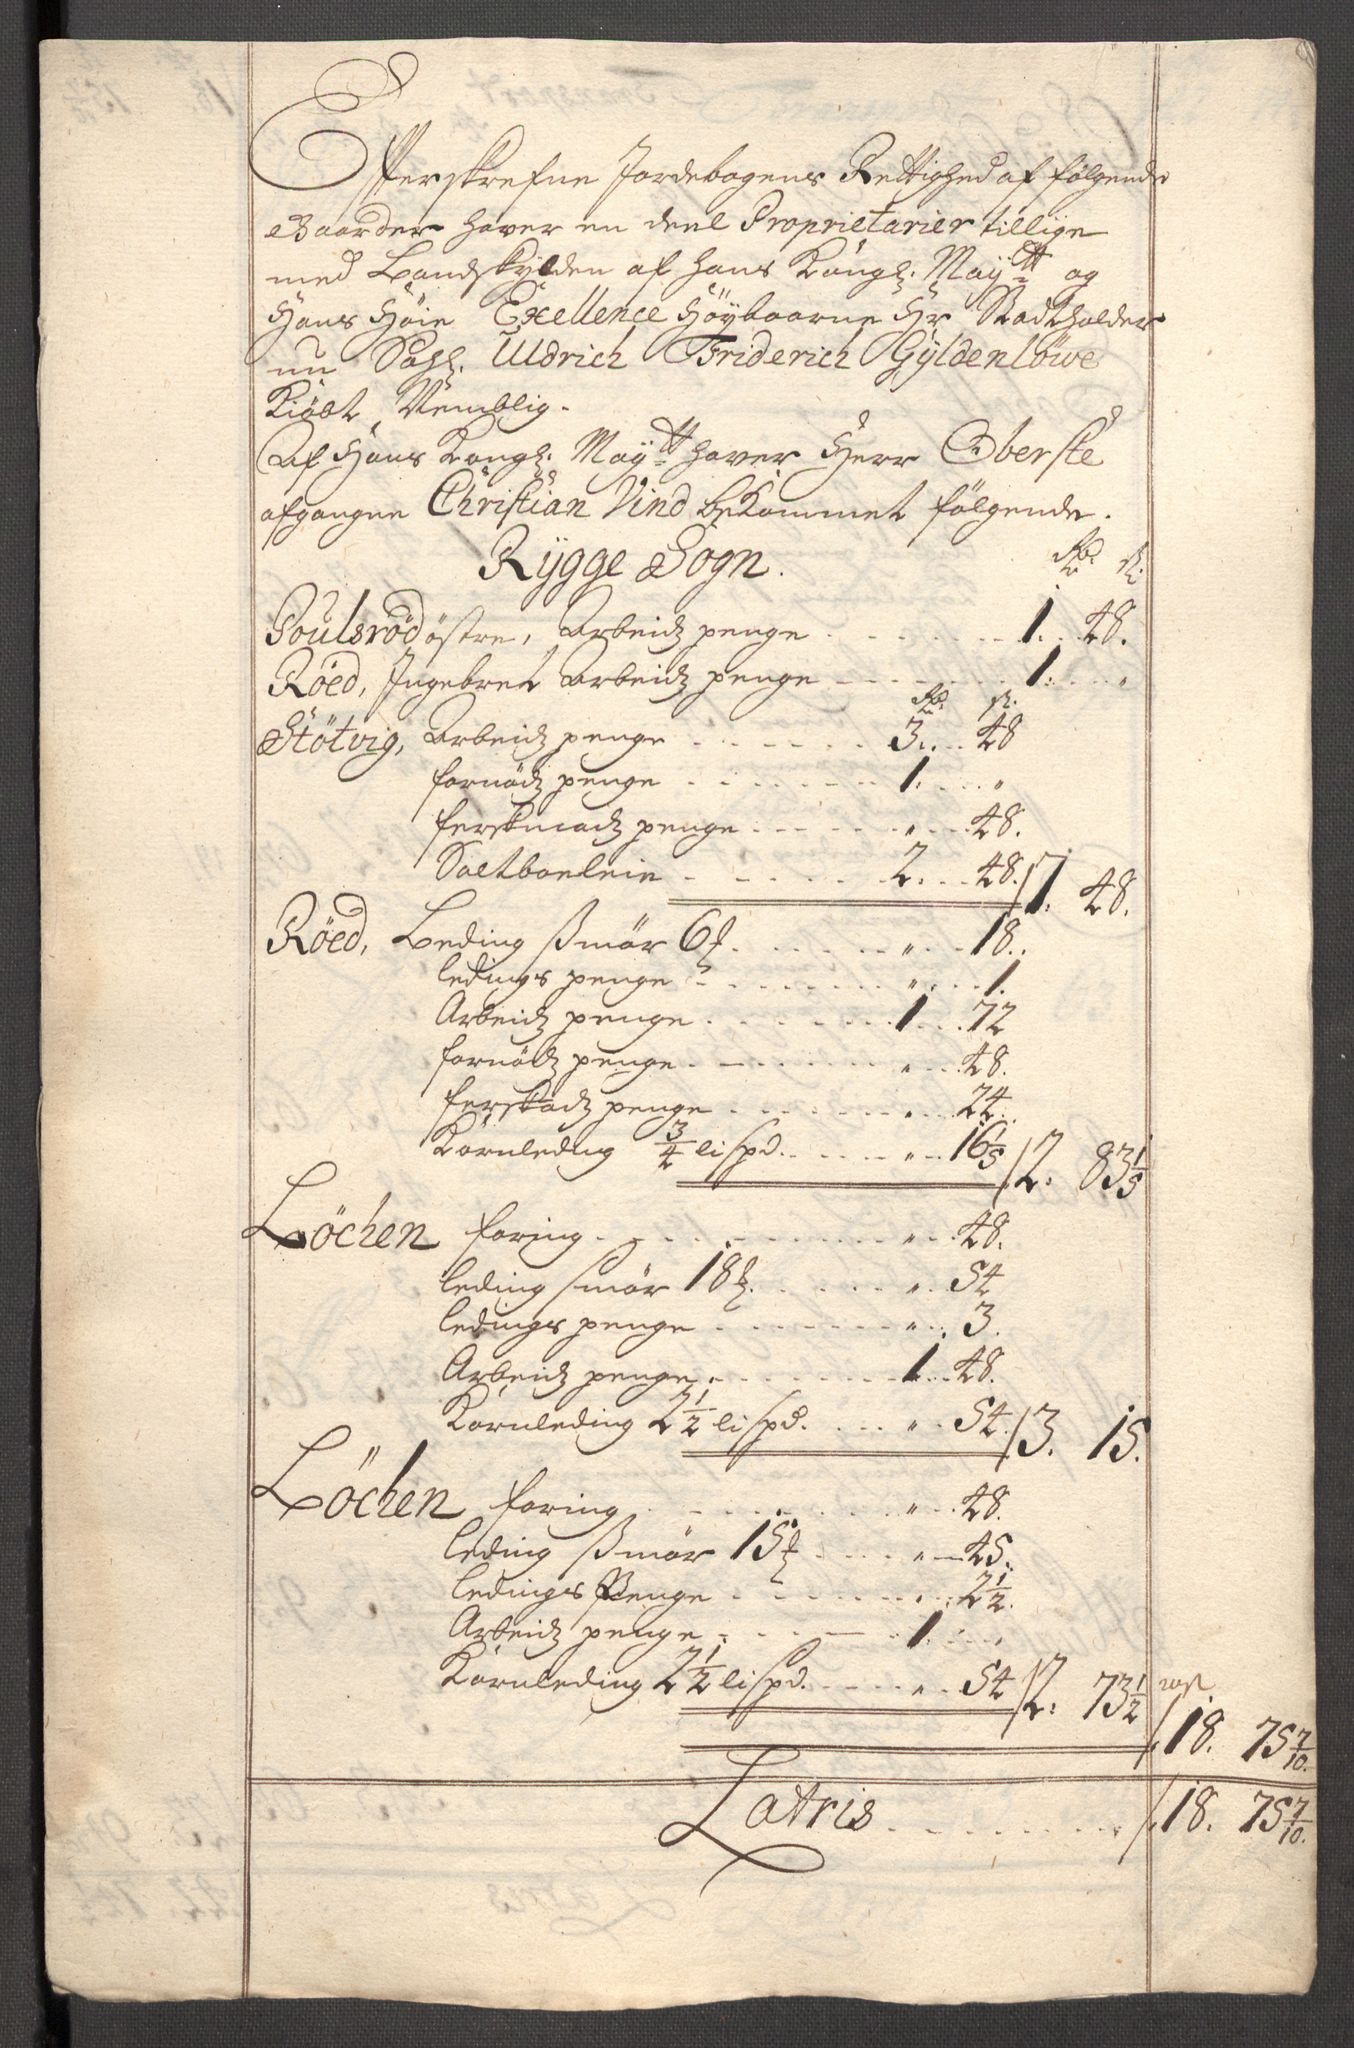 Efterskrefne Jordebogens Rettighed af følgende
Gaarder haver en deel Proprietarier tillige
med Landskylden af hans Kongl: Maytt og
Hans Høie Exellence Höÿbaarne Hr Stadtholder
nu Sahl. Uldrich Friderich Gÿldenlöwe
Kiöbt, Nemblig.
Af Hans Kongl: Maytt haver Herr Oberste
afgangne Christian Vind bekommet følgende.
Rÿgge Sogn. Rd. s.
Poulsröd östre, Arbeidz penge 1. 48.
Röed, Ingebret Arbeidz penge 1. "
Rd. s.
Stötvig, Arbeidz penge 3. 48
fornödz penge 1. "
ferskmadz penge " 48.
Saltboeleie 2. 48. / 7. 48.
Röed, Leding smör 6 " 18.
ledings penge " 1.
Arbeidz penge 1. 72
fornödz penge " 48.
ferskadz penge " 24.
Kornleding 3/4 lispd. " 16 1/5 / 2. 83 1/5
Löchen foring " 48.
leding smör 18 " 54
ledings penge " 3.
Arbeidz penge 1. 48.
Kornleding 2 1/2 lispd. " 54. / 3. 15.
Löchen foring " 48.
leding smör 15 " 45.
ledings Penge " 2 1/2.
Arbeidz penge 1. "
Kornleding 2 1/2 lispd. " 54 / 2. 73 1/2
/ 18. 75 7/10.
Latris / 18. 75 7/10.